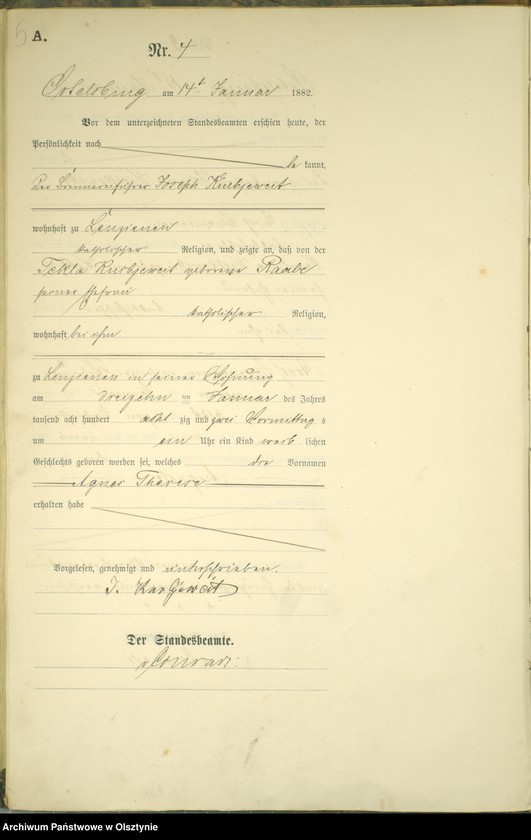 5
A.
Nr. 4
Ortelsburg am 14t Januar 1882.
Vor dem unterzeichneten Standesbeamten erschien heute, der
Persönlichkeit nach
be kannt,
Der Brennereiführer Joseph Kurbjeweit
wohnhaft zu Lenzienen
katholischer Religion, und zeigte an, daß von der
Tekla Kurbjeweit geborene Raabe
seiner Ehefrau
katholischer Religion,
wohnhaft bei ihm
zu Lenzienen in seiner Wohnung
am dreizehn ten Januar des Jahres
tausend acht hundert acht zig und zwei Vormittag s
um ein Uhr ein Kind weib lichen
Geschlechts geboren worden sei, welches die Vornamen
Agnes Therese
erhalten habe
Vorgelesen, genehmigt und unterschrieben.
J. Kurbjeweit
Der Standesbeamte.
v Conradi.
Archiwum Państwowe w Olsztynie